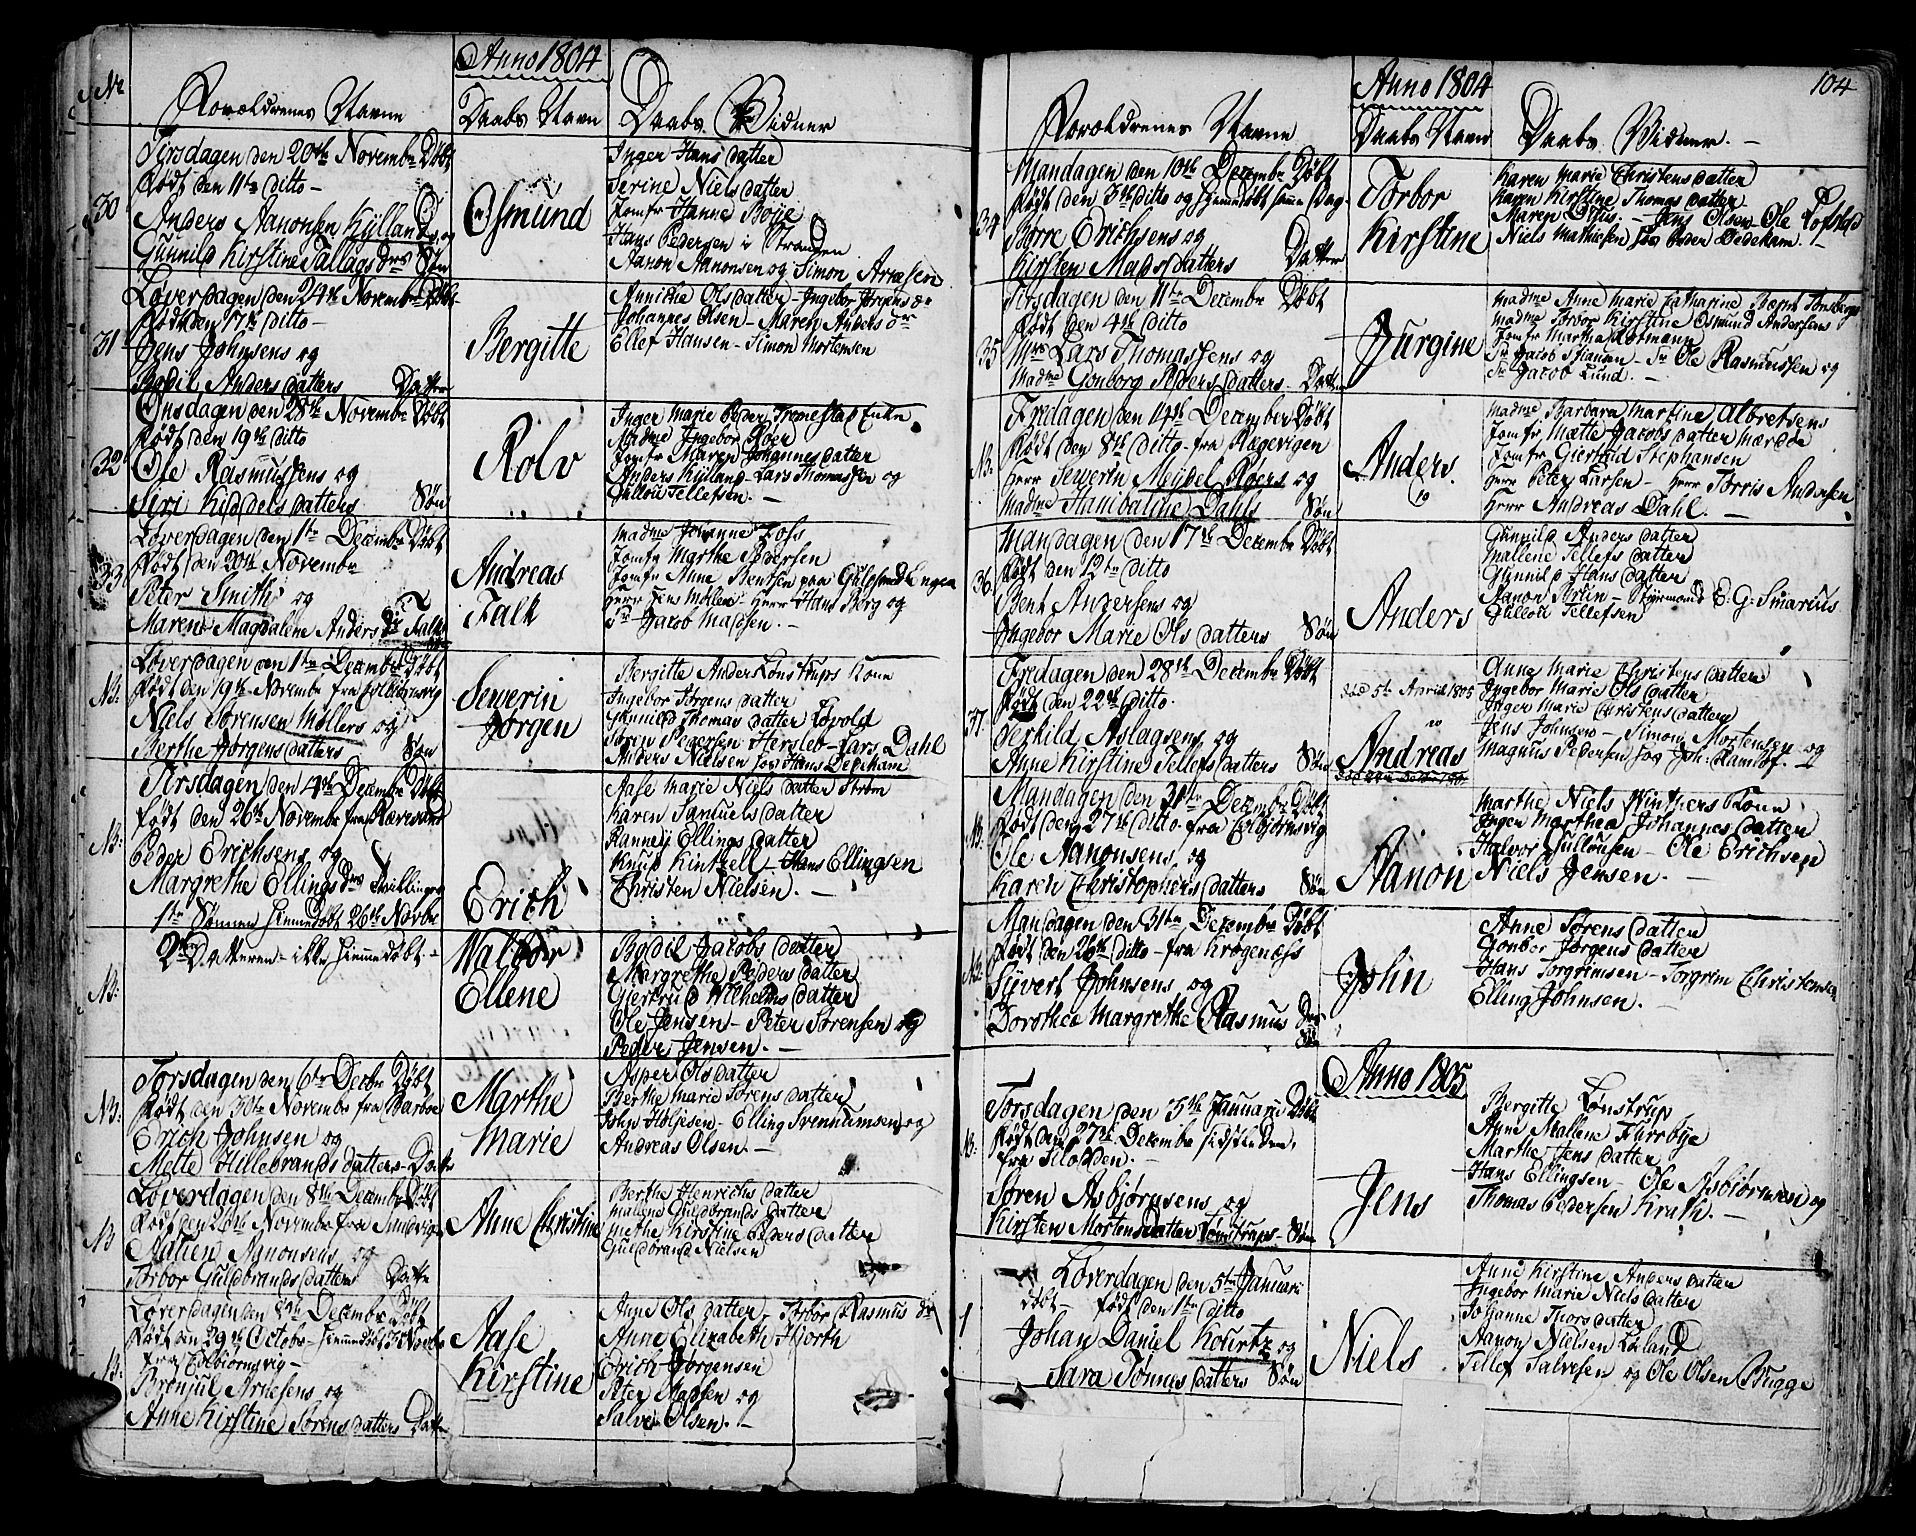 Anno 1804
No
Forældrenes Navne
Daabs Navn
Daabs Vidner
30
Tirsdagen den 20de Novembr Døbt
Født den 11te ditto –
Anders Aanonsen Kylland og
Gunnild Kirstine Tallags drs Søn
Osmund
Inger Hans datter
Serine Niels datter
Jomfr Hanne Boye
Hans Pedersen i Strangen
Aanon Aanonsen og Simon Arnesen
31
Løverdagen den 24de Novembr Døbt
Født den 17de ditto –
Jens Johnsens og
Bodil Anders datters Datter
Bergitte
Annithe Ols datter – Ingebor Jørgens dr
Johannes Olsen – Maren Anders dr
Ellef Hansen – Simon Mortensen
32
Onsdagen den 28de Novembr Døbt
Født den 19de ditto
Ole Rasmussens og
Siri Kiddels datters Søn
Rolv
Inger Marie Peder Tromestad Enke
Madme Ingebor Roer
Jomfr Maren Johannes datter
Anders Kylland – Lars Thomassen og
Gullou Tellefsen. –
33
Løverdagen den 1te Decembr Døbt
Født den 20de Novembr
Peter Smith og
Maren Magdalene Anders dr Falk
Andreas
Falk
Madme Johanne Foss
Jomfr Marthe Pedersen
Jomfr Anne Bentsen paa Guldsmed Engen
Herr Jens Møller – Herr Hans Borg og
Sr Jacob Madsen. –
NB:
Løverdagen den 1te Decembr Døbt
Født den 19de Novembr fra
Niels Sørensen Møllers og
Berthe Jørgens datters Søn
Sewerin
Jørgen
Bergitte Anders Lønstrups Kone
Ingebor Jørgens datter
Gunnild Thomas datter
Søren Pedersen Herslev – Lars Dahl
Anders Nielsen hos Hans Dedekam
NB:
Tirsdagen den 4de Decembr Døbt
født den 26de Novembr fra
Peder Erichsens og
Margrethe Ellings drs Tvillinger
1te Sønnen hiemedøbt 26de Novbr
Erich
Aase Marie Niels datter Strøm
Karen Samuels datter
Ranney Ellings datter
Knud Kintzell – Hans Ellingsen
Christen Nielsen. –
NB:
2den Datteren – ikke hiemmedøbt –
Walbor
Ellene
Bodil Jacobs datter
Margrethe Peders datter
Giertrud Wilhelms datter
Ole Jensen – Peter Sørensen og
Peder Jensen. –
NB:
Torsdagen den 6te Decbr Døbt
Født den 30te Novembr fra Barboe
Erich Johnsen og
Mette Hillebrands datters – Datter
Marthe
Marie
Asper Ols datter
Berthe Marie Sørens datter
John Holjesen – Elling Svennumsen og
Andreas Olsen. –
NB
Løverdagen den 8de Decembr Døbt
Født den Novembr fra
Adtien Aanonsens og
Torbor Guldbrands datters Datter
Anne Christine
Berthe Henrichs datter
Malene Guldbrands datter
Methe Kirstine Peders datter
Guldbrand Nielsen
NB.
Løverdagen den 8de Decembr Døbt
Født den 29de Octobr –
fra Edbiørnsvig –
Brenjul Arnesens og
Anne Kirstine Sørens datters Datter
Aase
Kirstine
Anne Ols datter – Torbor Rasmus dr
Anne Elizabeth Hjorth
Erich Jørgensen
Peter Madsen og
Salve Olsen. –
104
Anno 1804
Forældrenes Navne
Daabs Navn
Daabs Vidner. –
34
Mandagen den 10de Decembr Døbt
Født den 3de ditto og hjemmedøbt samme Dag –
Børre Erichsens og
Kirsten Mads datters Datter
Torbor
Kirstine
Karen Marie Christens datter
Karen Kirstine Thomas datter
Maren Ditus. – Jens Olsen – Ole Lofstad
Niels Mathiesen hos Peder Dedekam. –
35
Tirsdagen den 11te Decembr Døbt
Født den 4de ditto
Mr Lars Thomassens og
Madme Gonborg Peders datters – Datter
Jurgine
Madme Anne Marie Catharine Bernt Tønsbergs
Madme Torbor Kirstine Osmund Andersens
Jomfr Martha Rotmann
Sr Jacob – Sr Ole Rasmussen og
Sr Jacob Lund. –
NB.
Fredagen den 14de December Døbt
Født den 8de ditto – fra Rægevigen
Herr Sewerin Meydel Roers og
Madme Hambaline Dahls Søn
Anders.
Madme Barbara Martine Albretsens
Jomfr Mætte Jacobs datter Mærdøe
Jomfr Giertrud Stephansen
Herr Peter Larsen – Herr Torris Andersen
Herr Andreas Dahl. –
36
Mandagen den 17de Decembr Døbt
Født den 12te ditto
Bent Andersens og
Ingebor Marie Ols datters Søn
Anders
Gunnild Anders datter
Mallene Tellefs datter
Gunnild Hans datter
Aanon – Styrmand E. G. Smarius
Gullou Tellefsen
37.
Fredagen den 28de Decembr Døbt
Født den 22de ditto.
Terkild Aslagsens og
Anne Kirstine Tellefs datters Søn
død 5te April 1805
Andreas
Anne Marie Christens datter
Ingebor Marie Ols datter
Inger Marie Christens datter
Jens Johnsen – Simon Mortensen og
Magnus Pedersen hos Joh: Ramlof. –
NB.
Mandagen den 31te Decembr Døbt
Født den 27de ditto – fra Edbiørnsvig
Ole Aanonsens og
Karen Christophers datters Søn
Aanon
Marthe Niels Winthers Kone
Ingen Marthea Johannes datter
Halvor Gullousen – Ole Erichsen
Niels Jensen. –
NB.
Mandagen den 31te Decembr Døbt
Født den 26de ditto – fra Krøgenæss
Syvert Johnsens og
Dorothea Margrethe Rasmus drs
Søn
John
Anne Sørens datter
Gonbor Jørgens datter
Hans Torgrimsen – Torgrim Christensen
Elling Johnsen. –
Anno 1805
NB.
Torsdagen den 3de Januarii Døbt
Født den 27de Decembr sidstleden,
fra –
Søren Asbjørnsens og
Kirsten Mortens datter Lønstrups – Søn
Jens
Bergitte Lønstrup
Anne Mallene Furrbye
Marthe Jens datter
Hans Ellingsen – Ole Asbiørnsen og
Thomas Pedersen Krath. –
1
Løverdagen den 5te Januari
døbt – født den 1te ditto
Johan Daniel Kourtz og
Sara Tønnes datters Søn
Niels
Anne Kirstine Anders datter
Ingebor Marie Niels datter
Johanne Thors datter
Aanon Nielsen
Tellef Salvesen og Ole Olsen Brygge